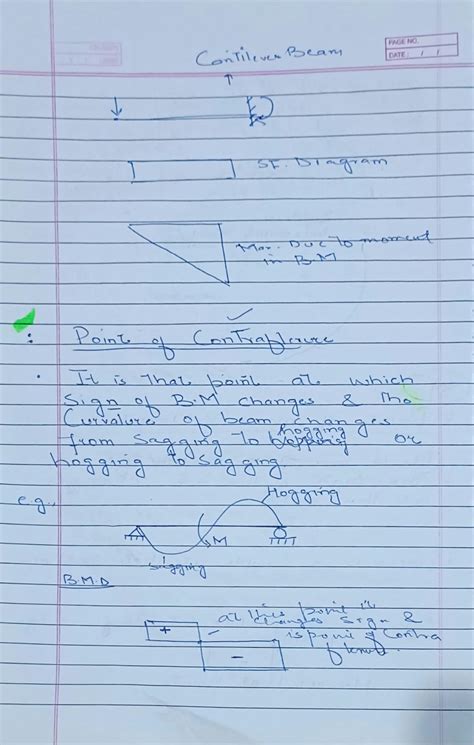 PAGE NO.
DATE / /
Contilever Beam
S.F. Diagram
Max. Due to moment
in B.M
Point of Contraflexure
It is that point at which
Sign of B.M changes & the
Curvature of beam changes
hogging
from sagging to or
hogging to sagging.
e.g.,
Hogging
M
sagging
B.M.D
at this point it
changes sign &
+ -
is point of Contra
-